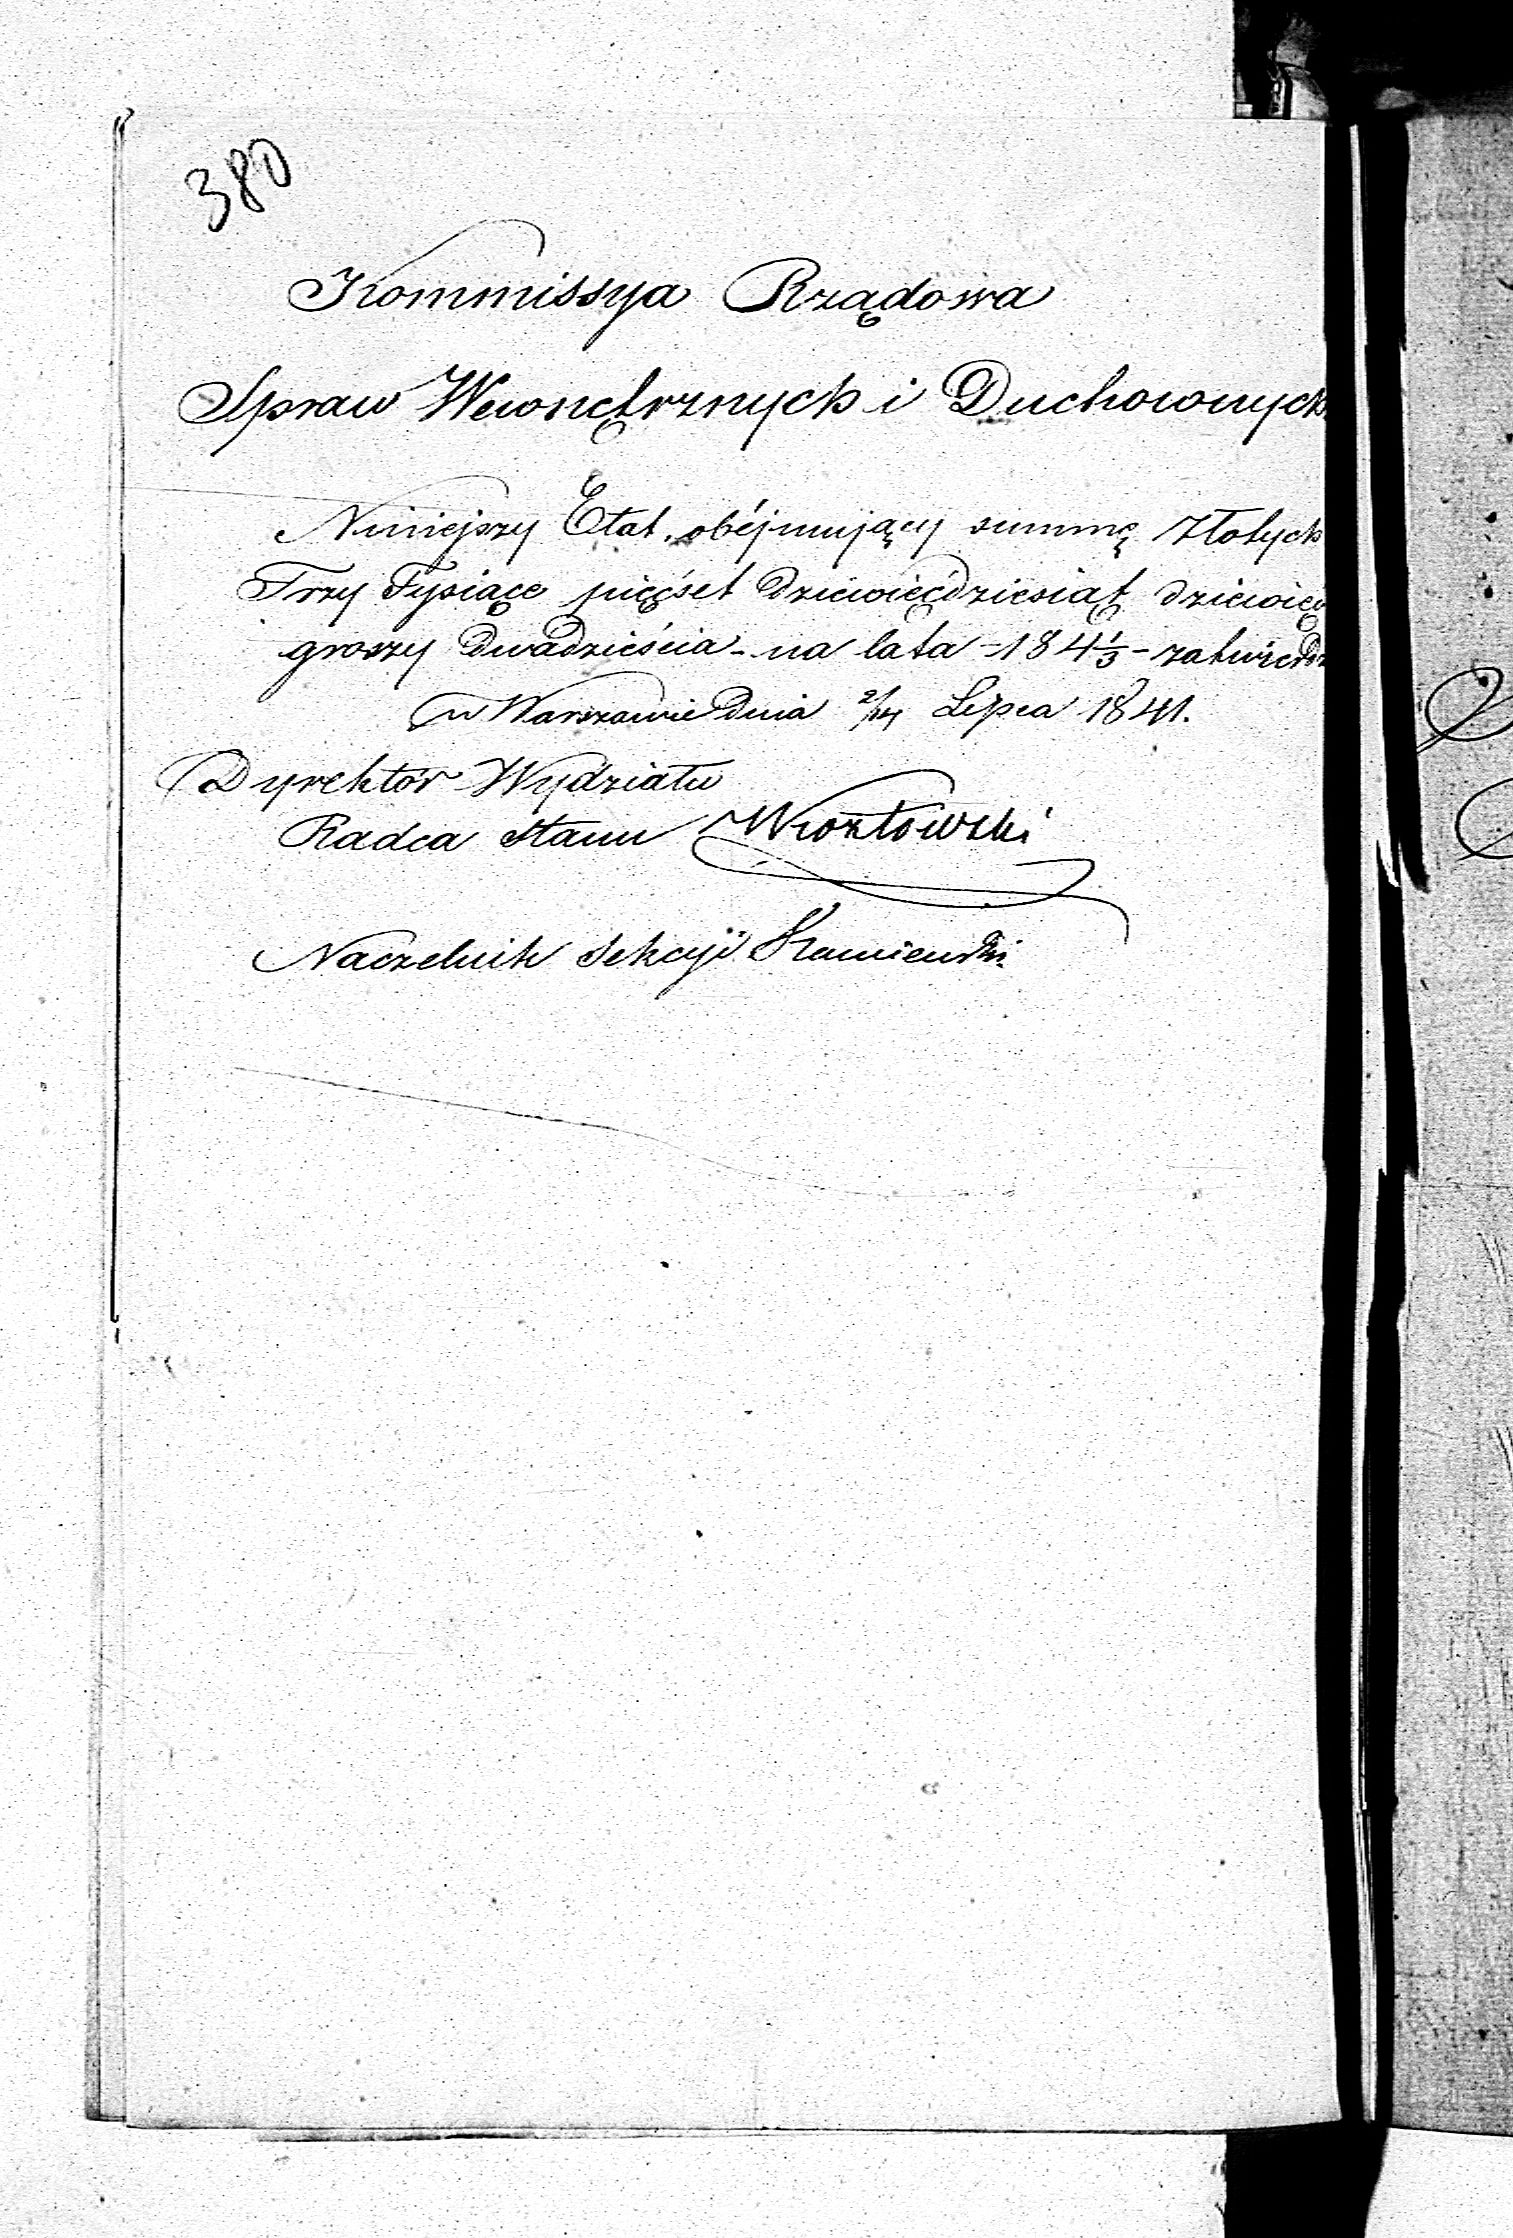 380
Kommissya Rządowa
Spraw Wewnętrznych i Duchownych
Niniejszy Etat, obéjmujący summę Złotych
Trzy Tysiące pięćset dziewięćdziesiąt dziewięć
groszy dwadzieścia - na lata - 184 1/3 - zatwierdz
w Warszawie dnia 2/14 Lipca 1841.
Dyrektór Wydziału
Radca Stanu
Naczelnik Sekcyi